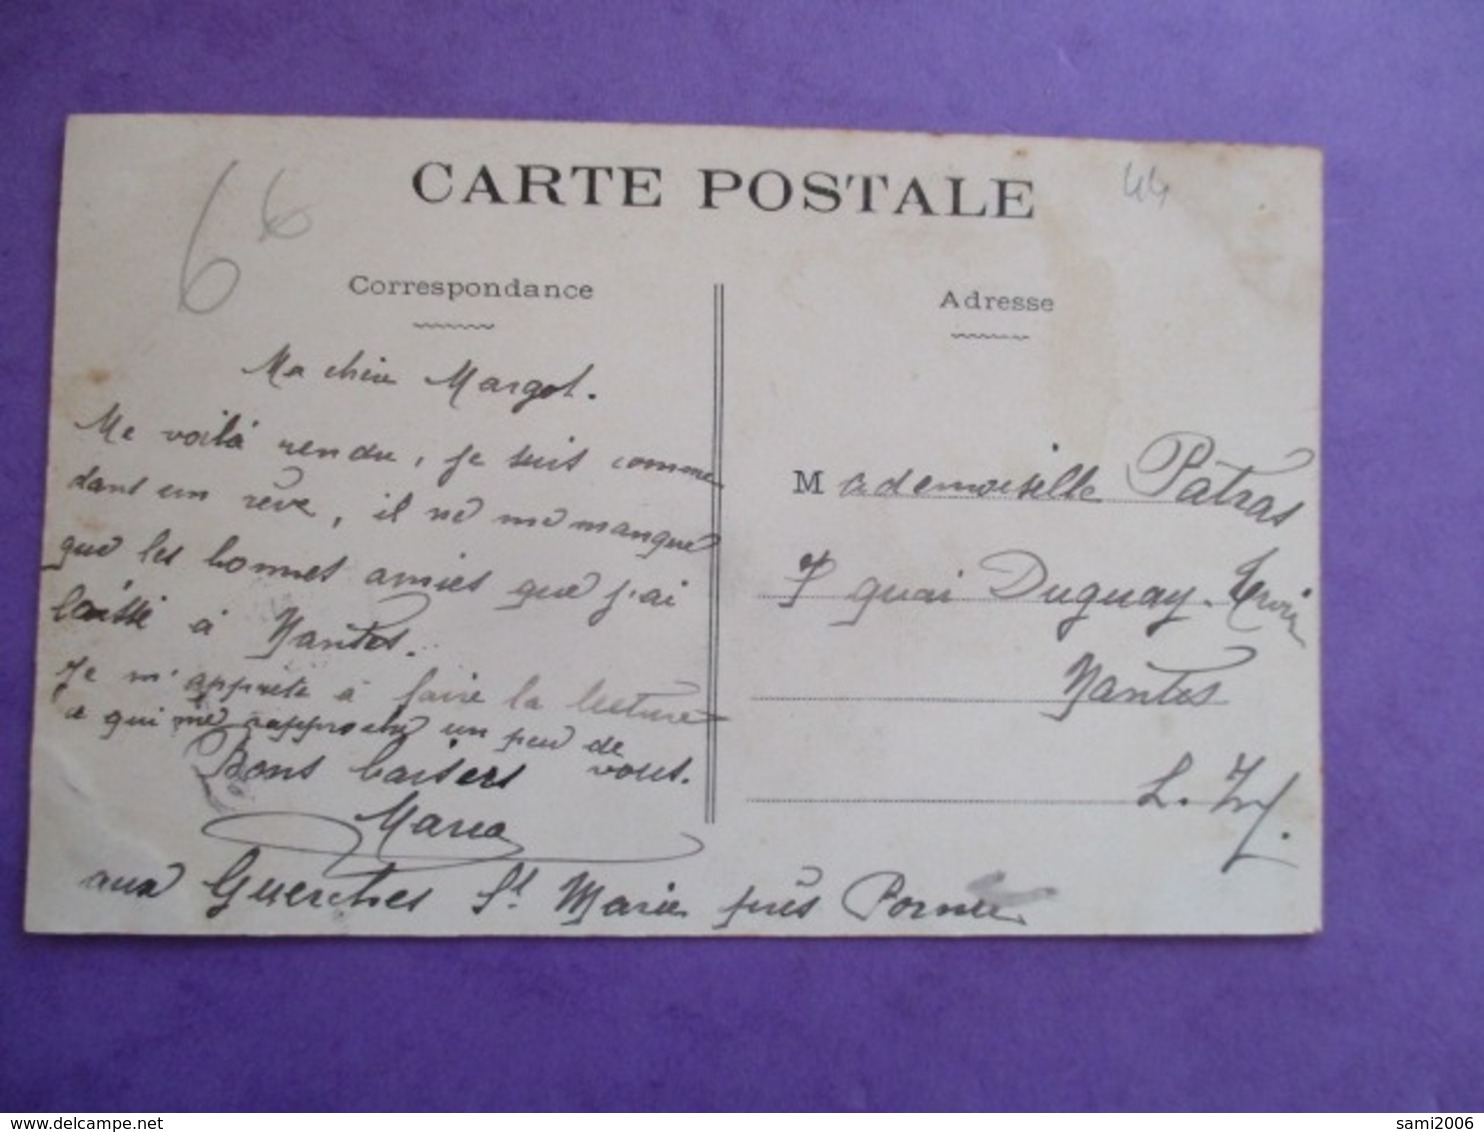 66
CARTE POSTALE
44
Correspondance
Ma chère Margot.
Me voilà rendu, je suis comme
dans un rêve, il ne me manque
que les bonnes amies que j'ai
laissé à Nantes.
Je m'apprête à faire la lecture
ce qui me rapproche un peu de
vous.
Bons baisers
Maria
aux Guerches St Marie près Pornic
Adresse
Mademoiselle Patras
7 quai Duguay-Trouin
Nantes
L. Inf.
sami2006
delcampe.net